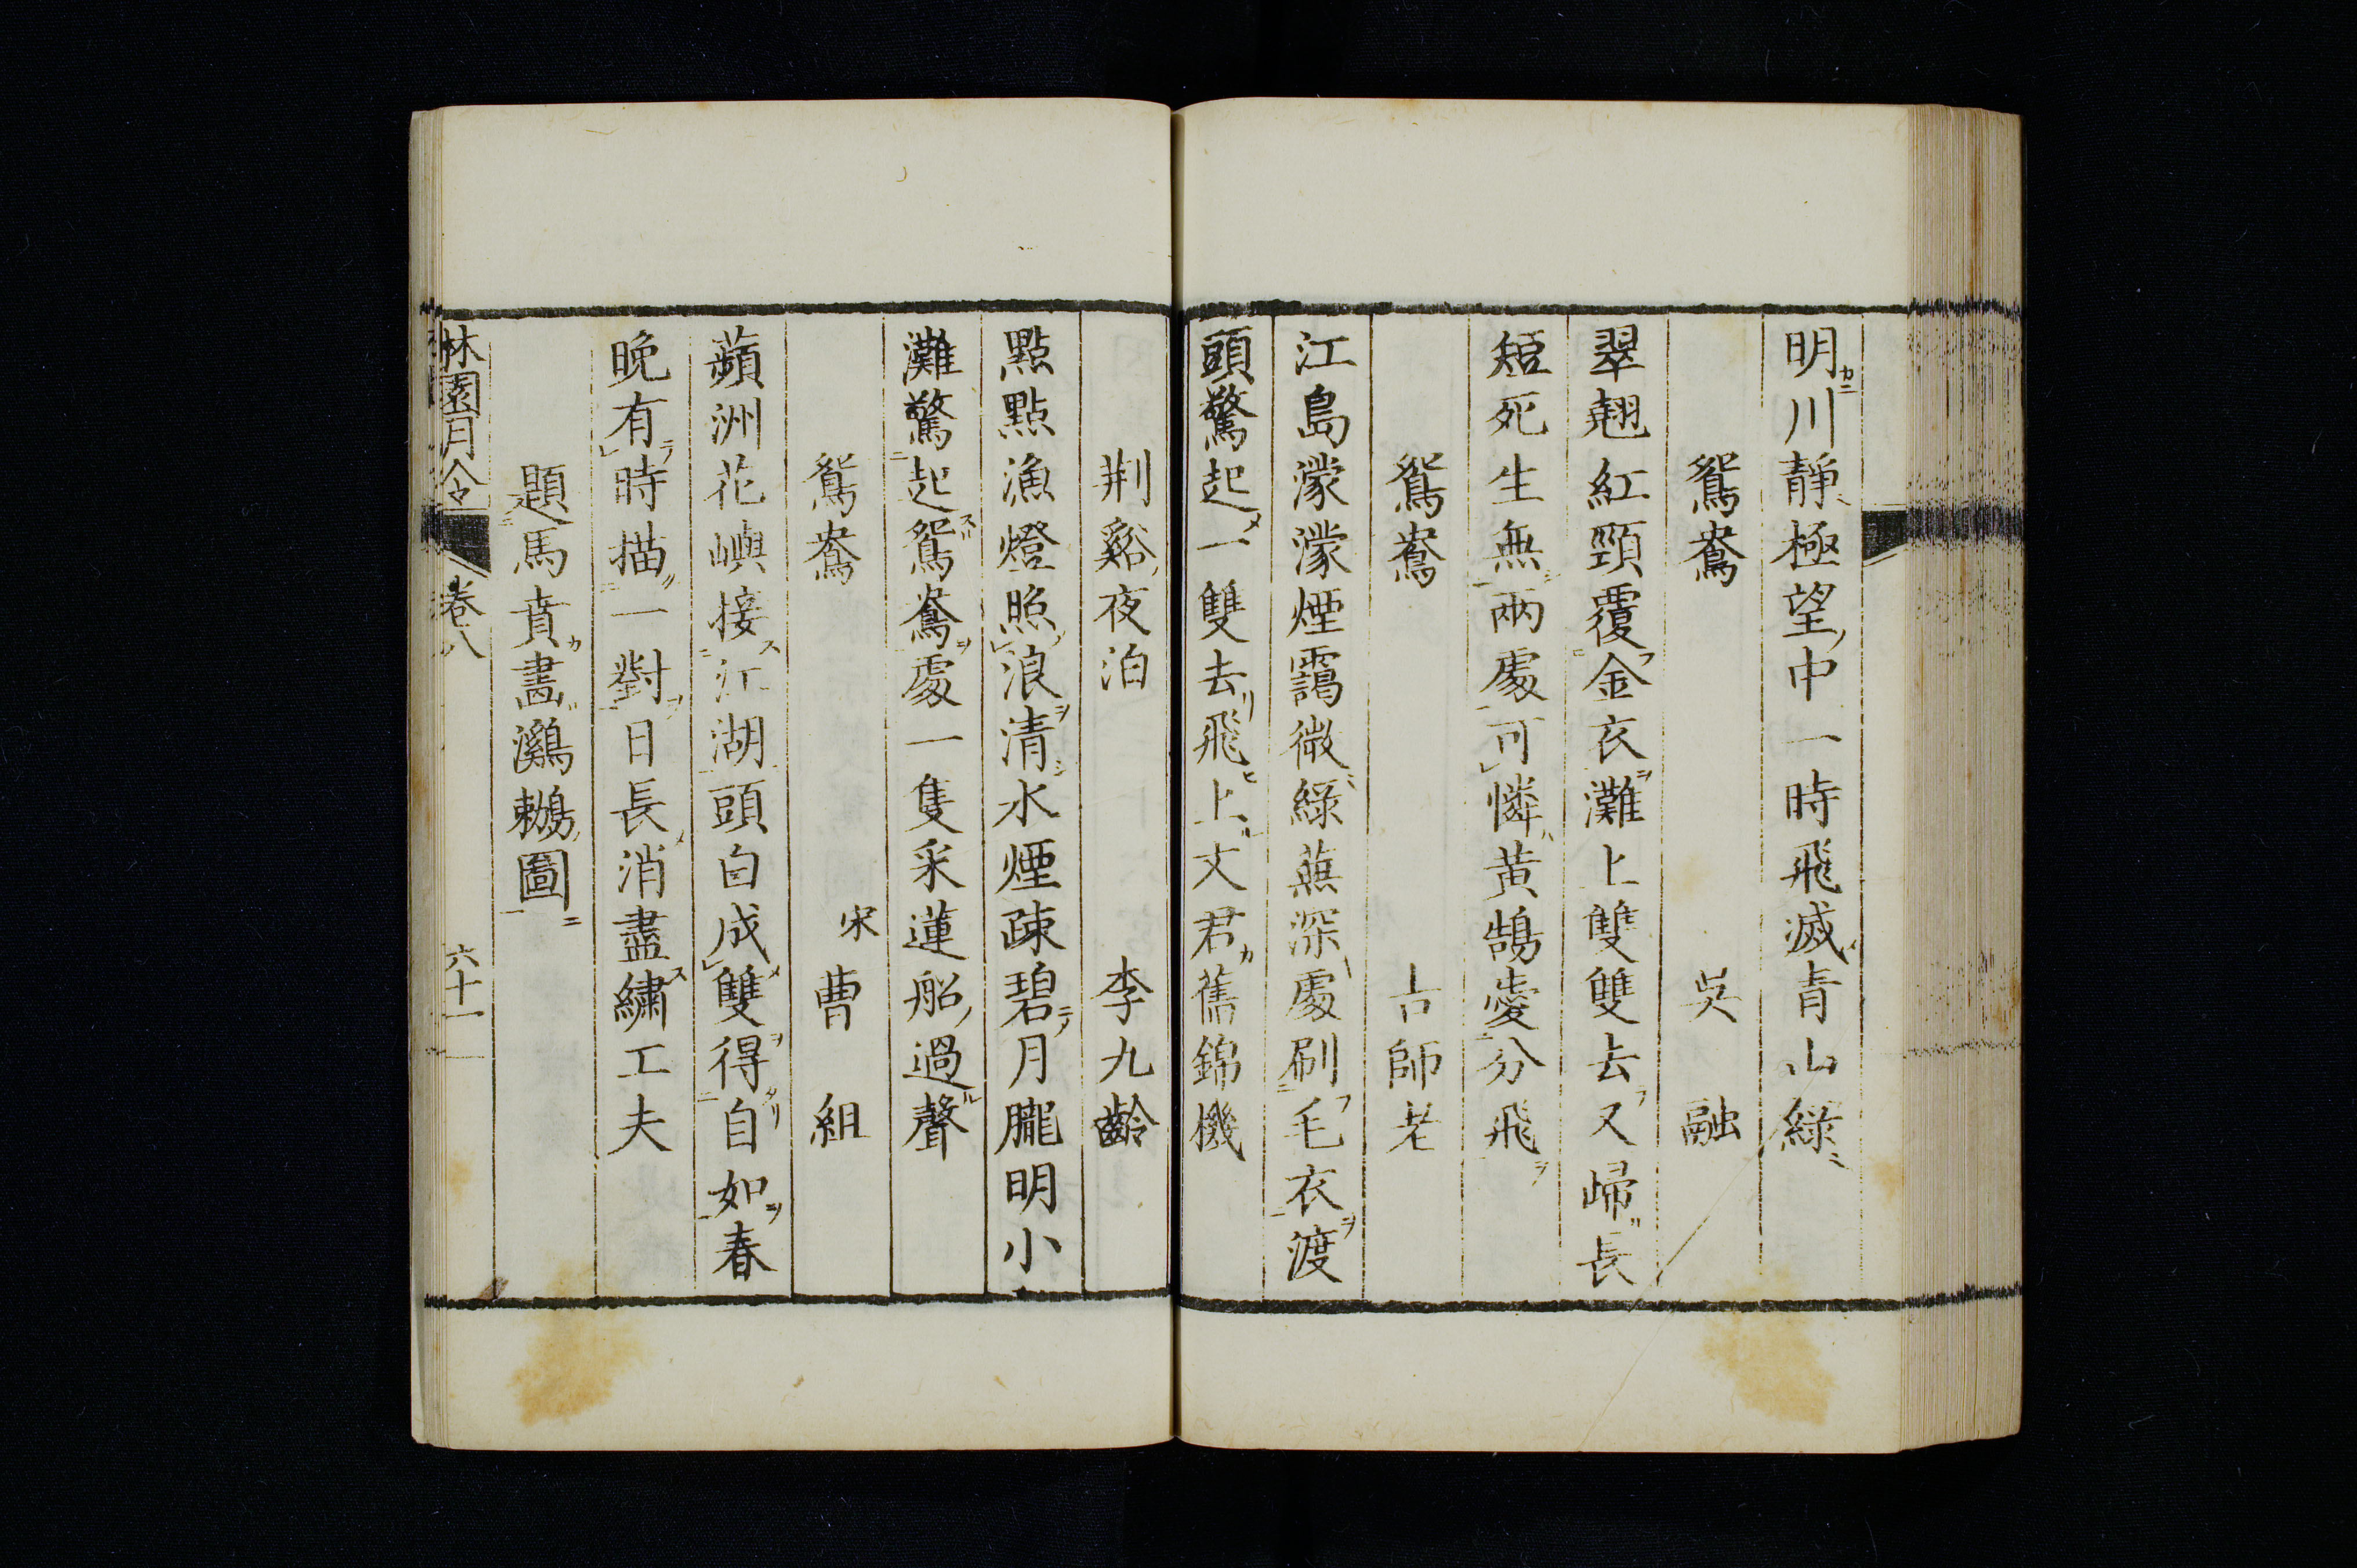 明川靜極望中一時飛滅青山綠
鴛鴦 吳融
翠翹紅頸覆金衣灘上雙雙去又歸長
短死生無兩處可憐黃鵠愛分飛
鴛鴦 吉師老
江島濛濛煙靄微綠蕪深處刷毛衣渡
頭驚起一雙去飛上文君舊錦機
荆谿夜泊 李九齡
點點漁燈照浪清水煙疎碧月朧明小
灘驚起鴛鴦處一隻采蓮船過聲
鴛鴦 宋曹組
蘋洲花嶼接江湖頭白成雙得自如春
晚有時描一對日長消盡繡工夫
題馬賁畫鸂鷘圖
林園月令 卷八 六十一